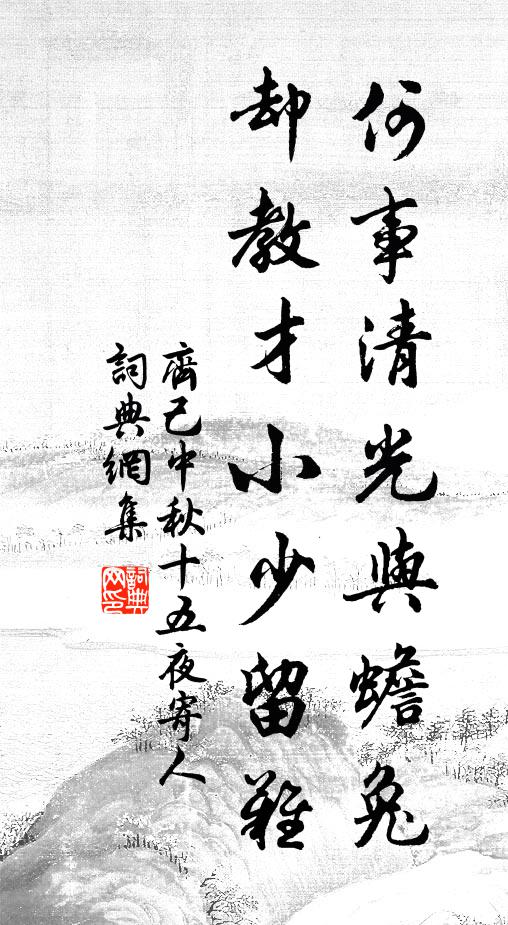 何事清光與蟾兔
却教才小少留難
齊己中秋十五夜寄人
詞典網集
詞典网印